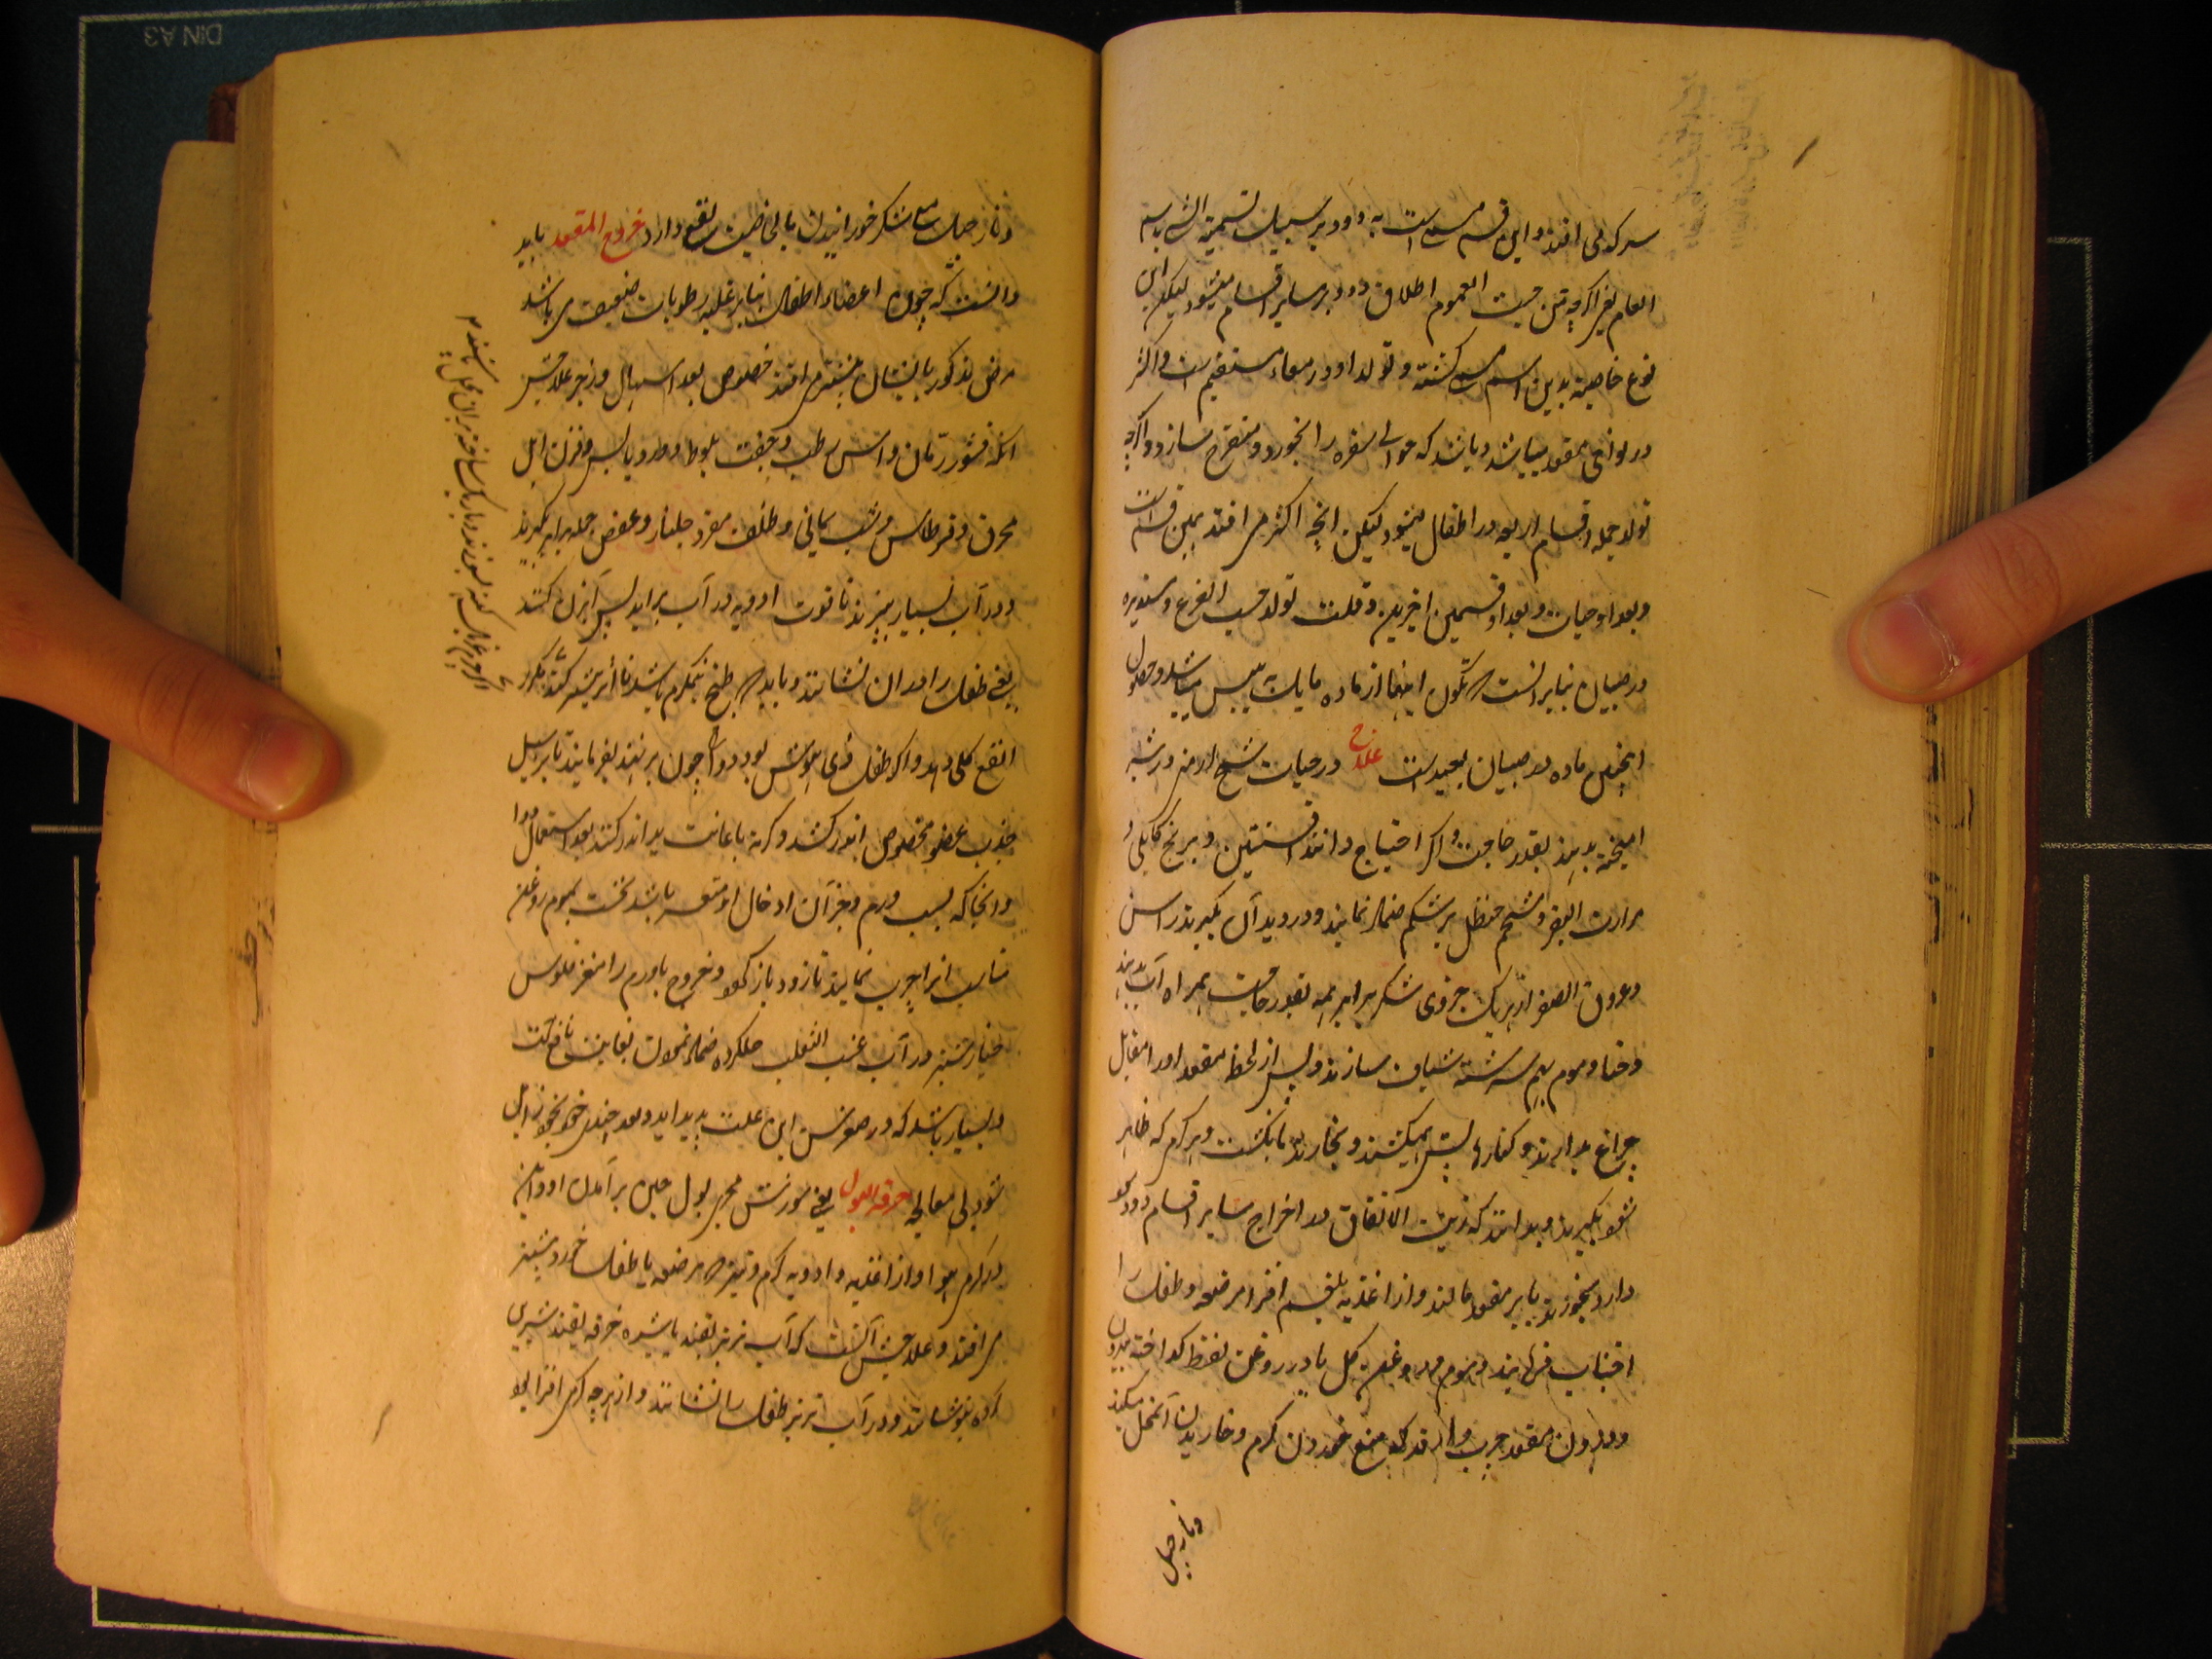 سرکه می افتد و این قسم مسمی است به دود بر سبیل تسمیة الشی باسم
العام یعنی اگرچه من حیث العموم اطلاق دود بر سایر اقسام میشود لیکن این
نوع خاصیه بدین اسم مسمی کشته و تولد او در معاء مستقیم است و اکثر
در نواحی مقعد میباشد و باشد که حوالی سفره را بخورد و متقرح سازد و اگرچه
تولد جمله اقسام اربعه در اطفال میشود لیکن انچه اکثر می افتد همین قسم است
و بعد او حیات و بعد او قسمین اخیرین و قلت تولد حب القرع و مستدیره
در صبیان بنابر انست که تکون اینها از ماده مایل به یبس میباشد و حصول
اینچنین ماده در صبیان بعید است علاج در حیات شیح ارمنی در شیر
امیخته بدهند بقدر حاجت و اگر احتیاج دانند افسنتین و برنج کابلی و
مرارت البقر و شحم حنظل بر شکم ضماد نمایند و در دیدان بگیرند راسن
و عروق الصفر از هریک جزوی شکر برابر همه بقدر حاجت همراه آب بدهند
و حنا و موم بهم سرشته شیاف سازند و پس از لحظه مقعد او را مقابل
چراغ بدارند و کنارها پس میکشند و بخارند بانگشت و هر کرم که ظاهر
شود بگیرند و بدانند که زیت الانفاق در اخراج سایر اقسام دود
دارد بخورند یا بر مقعد مالند و از اغذیه بلغم افزا مرضعه و طفل را
اجتناب فرمایند و موم در روغن کل یا در روغن نفط کداخته بیرون
و درون مقعد چرب دارند که منع خوردن کرم و خاریدن آنمحل میکند
ونارجیل
ونارجیل با شکر خورانیدن بالخاصیت نفع دارد خروج المقعد باید
دانست که چون اعضاء اطفال بنابر غلبه رطوبات ضعیف می باشد
مرض مذکور بایشان بیشتر می افتد خصوص بعد اسهال و زحیر علاجش
انکه قشور رمان و اس رطب و جفت بلوط و ورد یابس و قرن ایل
محرق و قرطاس و شب یمانی و ظلف معز و جلنار و عفص جمله برابر بگیرند
و در آب بسیار بپزند تا قوت ادویه در آب براید پس آبزن کنند
یعنی طفل را در ان نشانند و باید که طبیخ نیمکرم باشد تا اثر بیشتر کند
انفع کلی دهد و اگر طفل ذی هوش بود دوا چون برنهند بفرمایند تا بر سبیل
جذب عضو مخصوص اندر کشد و کرنه باعانت ید اندر کنند بعد استعمال دوا
و انجا که بسبب ورم و جز آن ادخال او متعسر باشد نخست بموم روغن
مناسب انرا چرب نمایند تا زود باز کردد و خروج باورم را مغز فلوس
خیارشنبر در آب عنب الثعلب حلکرده ضماد نمودن بغایت نافع است
و بسیار باشد که در صغرسن این علت پدید اید و بعد چندی خود بخود زایل
شود بی معالجه حرقة البول یعنی سوزش مجری بول حین برآمدن او و این
در گرمی هوا و از اغذیه و ادویه کرم و تیز که مرضعه یا طفل خورد بیشتر
می افتد و علاجش آنست که آب تربز بقند یا شیره خرفه بقند شیرین
کرده بنوشانند و در آب تربز طفل را نشانند و از هرچه کرمی افزا بود